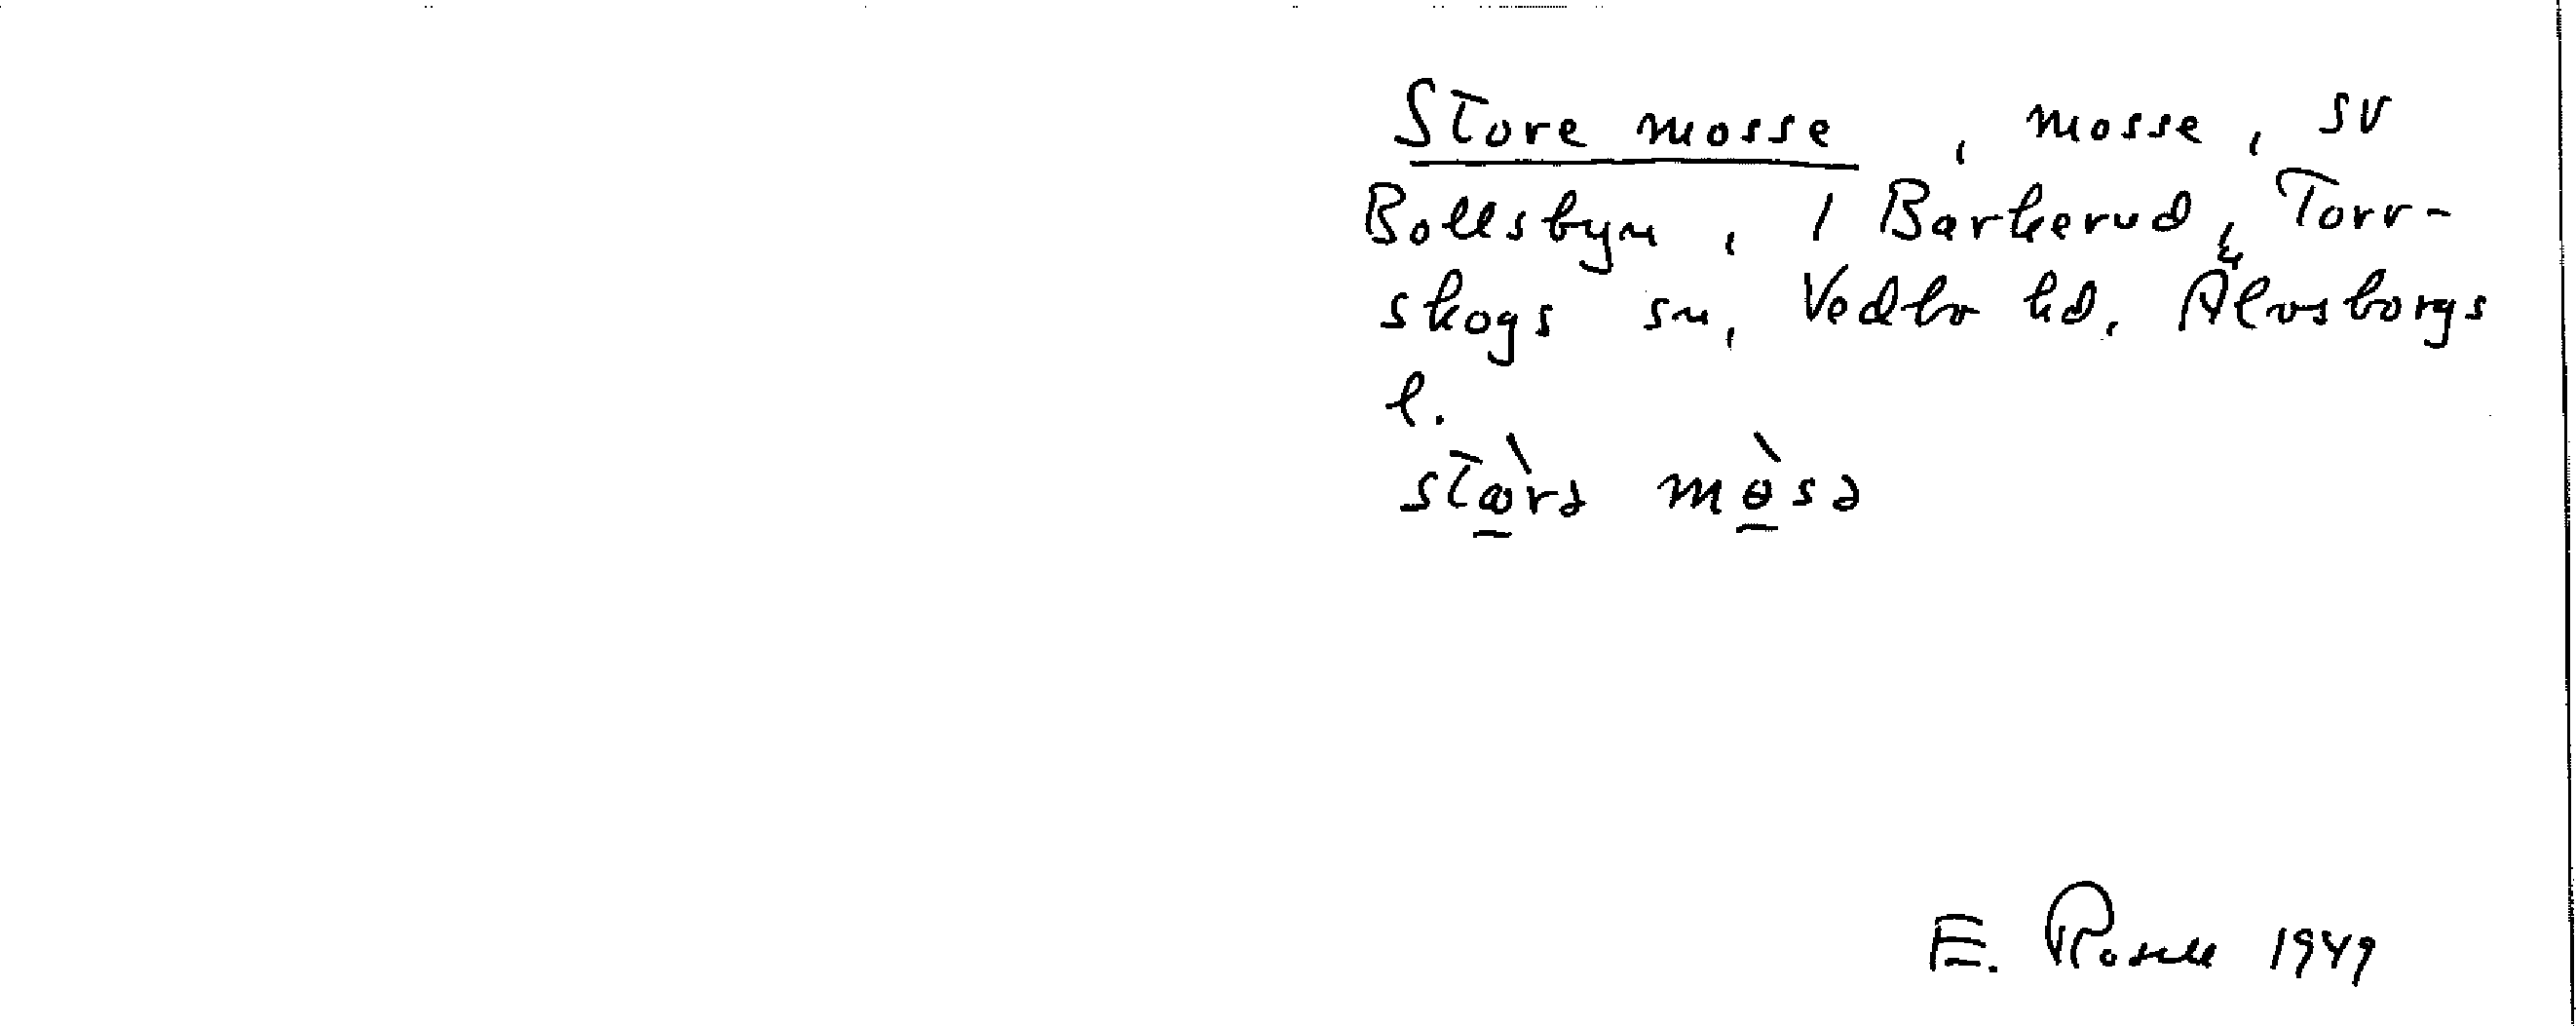 Store mosse, mosse, sv
Bollsbyn, 1 Barkerud, Torr-
skogs sn, Vedbo hd, Älvsborgs
l.
E. Rosell 1949